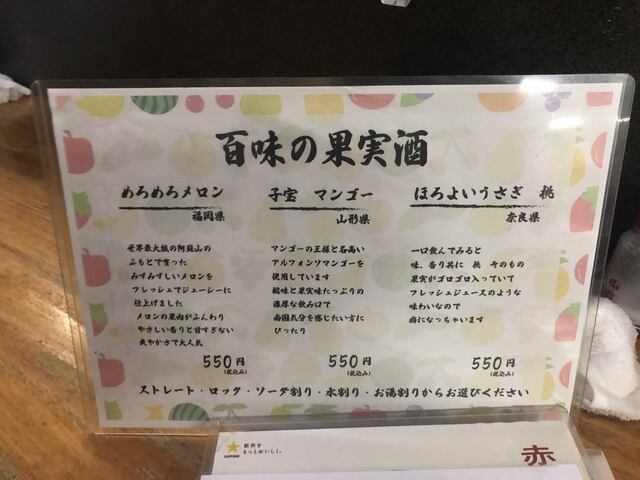 百味の果実酒
めろめろメロン
福岡県
世界最大級の阿蘇山の
ふもとで育った
みずみずしいメロンを
フレッシュでジューシーに
仕上げました
メロンの果肉がふんわり
やさしい香りと甘すぎない
爽やかさで大人気
550円
(税込み)
子宝 マンゴー
山形県
マンゴーの王様と名高い
アルフォンソマンゴーを
使用しています
酸味と果実味たっぷりの
濃厚な飲み口で
南国気分を感じたい方に
ぴったり
550円
(税込み)
ほろよいうさぎ 桃
奈良県
一口飲んでみると
味、香り共に 桃 そのもの
果実がゴロゴロ入っていて
フレッシュジュースのような
味わいなので
癖になっちゃいます
550円
(税込み)
ストレート・ロック・ソーダ割り・水割り・お湯割りからお選びください
SAPPORO
乾杯を
もっとおいしく。
赤